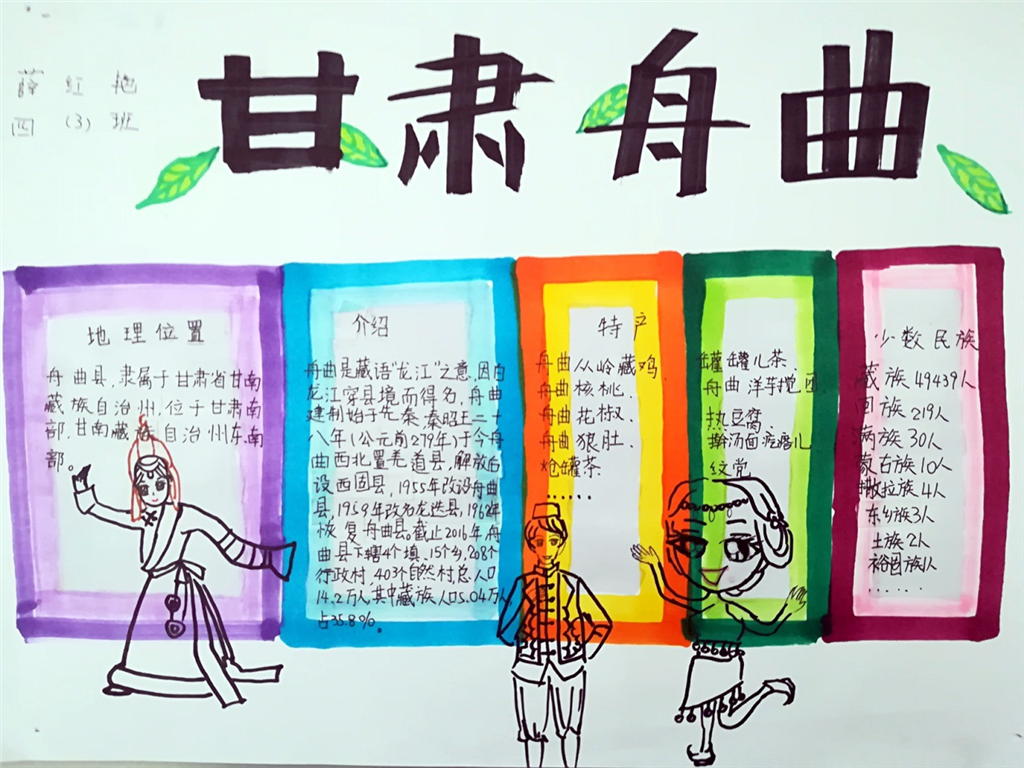 甘肃舟曲
薛红艳
四(3)班
地理位置
舟曲县,隶属于甘肃省甘南
藏族自治州,位于甘肃南
部,甘南藏族自治州东南
部。
介绍
舟曲是藏语“龙江”之意,因白
龙江穿县境而得名。舟曲
建制始于先秦,秦昭王二十
八年(公元前279年)于今舟
曲西北置羌道县,解放后
设西固县,1955年改设舟曲
县,1958年改名龙迭县,1962年
恢复舟曲县。截止2016年舟
曲县下辖4个镇、15个乡,208个
行政村,403个自然村总人口
14.2万人其中藏族人口5.04万人
占35.8%。
特产
舟曲从岭藏鸡.
舟曲核桃.
舟曲花椒.
舟曲狼肚.
炝罐茶.
......
罐罐儿茶.
舟曲洋芋搅团.
热豆腐.
擀汤面疙瘩儿
纹党
少数民族
藏族49439人
回族219人
满族30人
蒙古族10人
撒拉族4人
东乡族3人
土族2人
裕固族1人
......